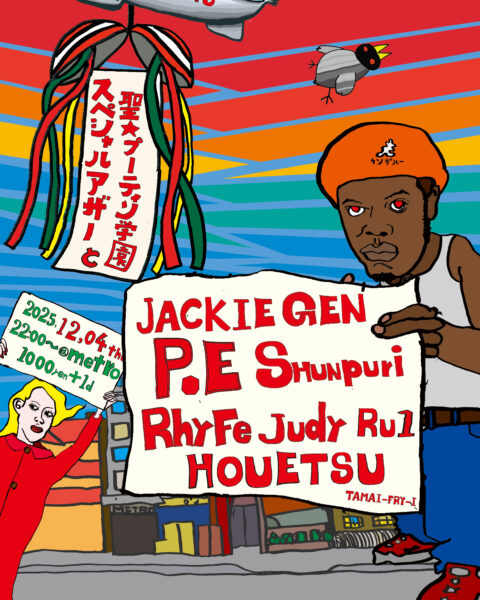 聖★プーチン学園
スペシャルアザーと
ケンゲハー
2025.12.04.thu
22:00〜@metro
1000yen+1d
JACKIE GEN
P.E SHUNPURI
RhyFe Judy Ru1
HOUETSU
TAMAI-FRY-J
METRO